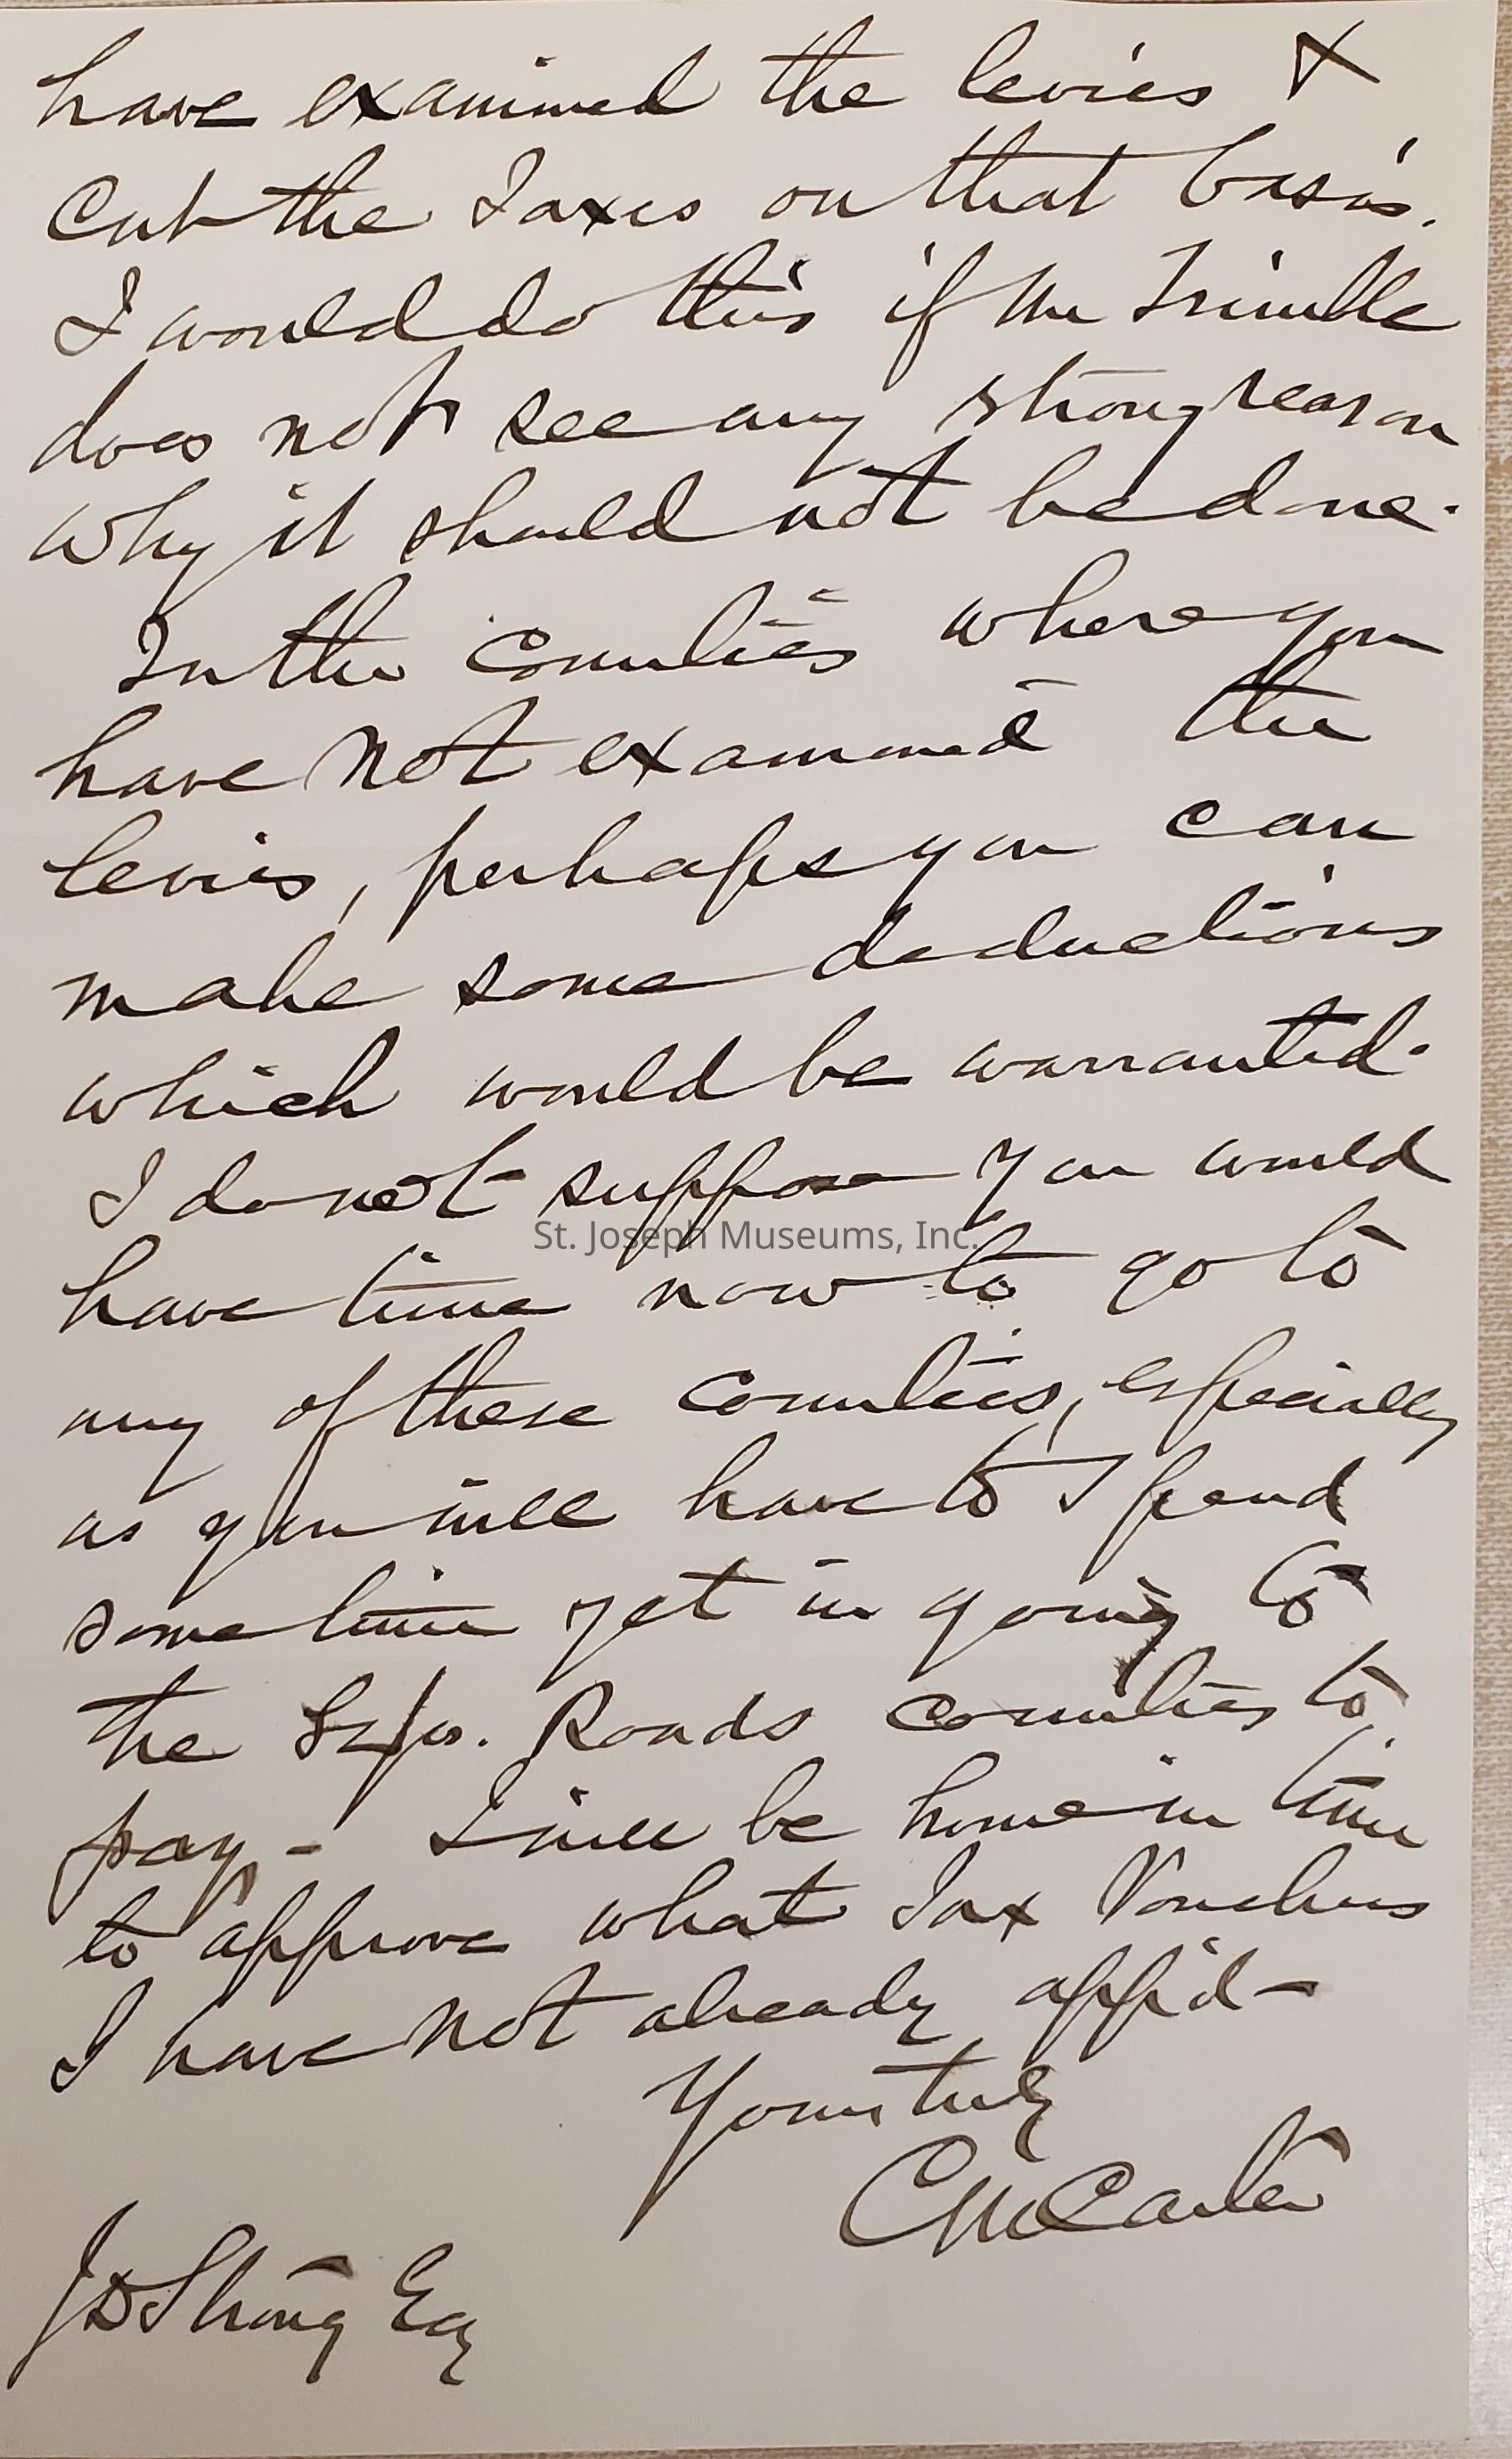 have examined the levies &
Cut the Taxes on that basis.
I would do this if Mr Trimble
does not see any strong reason
why it should not be done.
In the Counties where you
have not examined the
levies, perhaps you can
make some deductions
which would be warranted.
I do not suppose you would
St. Joseph Museums, Inc.
have time now to go to
any of these Counties, especially
as you will have to spend
some time yet in going to
the Roads Counties to
pay - I will be home in time
to approve what Tax Vouchers
I have not already app'd -
Yours truly
C M Carter
J D Strong Esq